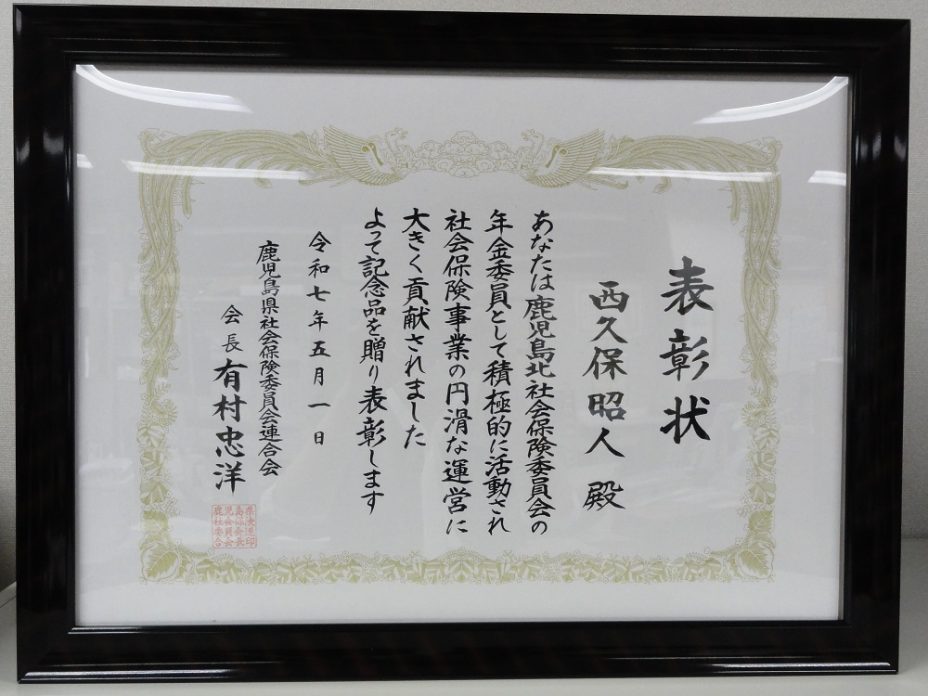 表彰状
西久保昭人 殿
あなたは鹿児島北社会保険委員会の
年金委員として積極的に活動され
社会保険事業の円滑な運営に
大きく貢献されました
よって記念品を贈り表彰します
令和七年五月一日
鹿児島県社会保険委員会連合会
会長 有村忠洋